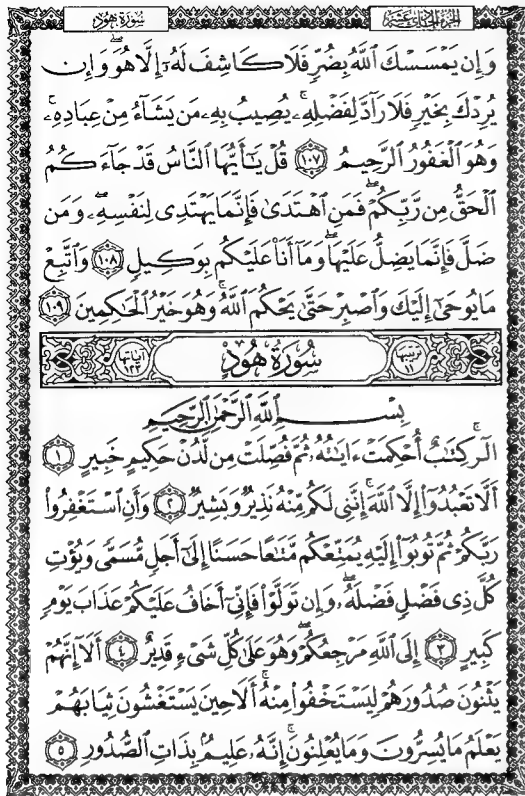 سُورَةُ هُودٍ
الجزء الحادي عشر
وَإِن يَمْسَسْكَ ٱللَّهُ بِضُرٍّ فَلَا كَاشِفَ لَهُۥٓ إِلَّا هُوَۖ وَإِن
يُرِدْكَ بِخَيْرٍ فَلَا رَآدَّ لِفَضْلِهِۦۚ يُصِيبُ بِهِۦ مَن يَشَآءُ مِنْ عِبَادِهِۦۚ
وَهُوَ ٱلْغَفُورُ ٱلرَّحِيمُ ١٠٧ قُلْ يَٰٓأَيُّهَا ٱلنَّاسُ قَدْ جَآءَكُمُ
ٱلْحَقُّ مِن رَّبِّكُمْۖ فَمَنِ ٱهْتَدَىٰ فَإِنَّمَا يَهْتَدِى لِنَفْسِهِۦۖ وَمَن
ضَلَّ فَإِنَّمَا يَضِلُّ عَلَيْهَاۖ وَمَآ أَنَا۠ عَلَيْكُم بِوَكِيلٍ ١٠٨ وَٱتَّبِعْ
مَا يُوحَىٰٓ إِلَيْكَ وَٱصْبِرْ حَتَّىٰ يَحْكُمَ ٱللَّهُۚ وَهُوَ خَيْرُ ٱلْحَٰكِمِينَ ١٠٩
ترتيبها ١١ سُورَةُ هُودٍ آياتها ١٢٣
بِسْمِ ٱللَّهِ ٱلرَّحْمَٰنِ ٱلرَّحِيمِ
الٓرۚ كِتَٰبٌ أُحْكِمَتْ ءَايَٰتُهُۥ ثُمَّ فُصِّلَتْ مِن لَّدُنْ حَكِيمٍ خَبِيرٍ ١
أَلَّا تَعْبُدُوٓا۟ إِلَّا ٱللَّهَۚ إِنَّنِى لَكُم مِّنْهُ نَذِيرٌ وَبَشِيرٌ ٢ وَأَنِ ٱسْتَغْفِرُوا۟
رَبَّكُمْ ثُمَّ تُوبُوٓا۟ إِلَيْهِ يُمَتِّعْكُم مَّتَٰعًا حَسَنًا إِلَىٰٓ أَجَلٍ مُّسَمًّى وَيُؤْتِ
كُلَّ ذِى فَضْلٍ فَضْلَهُۥۖ وَإِن تَوَلَّوْا۟ فَإِنِّىٓ أَخَافُ عَلَيْكُمْ عَذَابَ يَوْمٍ
كَبِيرٍ ٣ إِلَى ٱللَّهِ مَرْجِعُكُمْۖ وَهُوَ عَلَىٰ كُلِّ شَىْءٍ قَدِيرٌ ٤ أَلَآ إِنَّهُمْ
يَثْنُونَ صُدُورَهُمْ لِيَسْتَخْفُوا۟ مِنْهُۚ أَلَا حِينَ يَسْتَغْشُونَ ثِيَابَهُمْ
يَعْلَمُ مَا يُسِرُّونَ وَمَا يُعْلِنُونَۚ إِنَّهُۥ عَلِيمٌۢ بِذَاتِ ٱلصُّدُورِ ٥